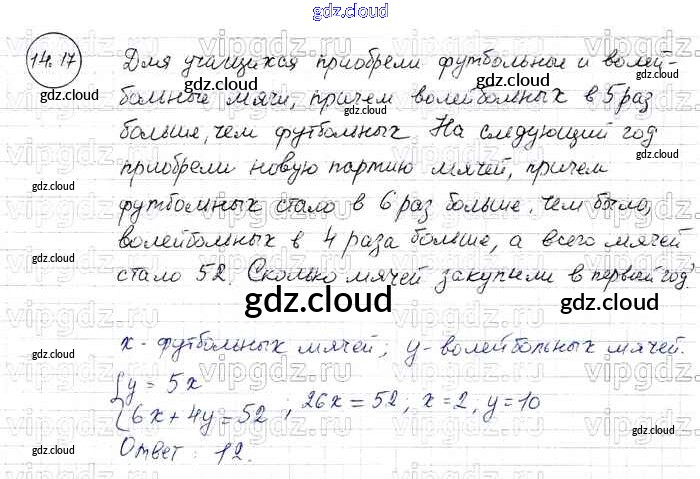 gdz.cloud
14.17
Для учащихся приобрели футбольные и волей-
больные мячи, причем волейбольных в 5 раз
больше, чем футбольных. На следующий год
приобрели новую партию мячей, причем
футбольных стало в 6 раз больше, чем было,
волейбольных в 4 раза больше, а всего мячей
стало 52. Сколько мячей закупили в первый год?
gdz.cloud
x - футбольных мячей; y - волейбольных мячей.
{y = 5x
{6x + 4y = 52 ; 26x = 52; x = 2, y = 10
Ответ: 12.
gdz.cloud